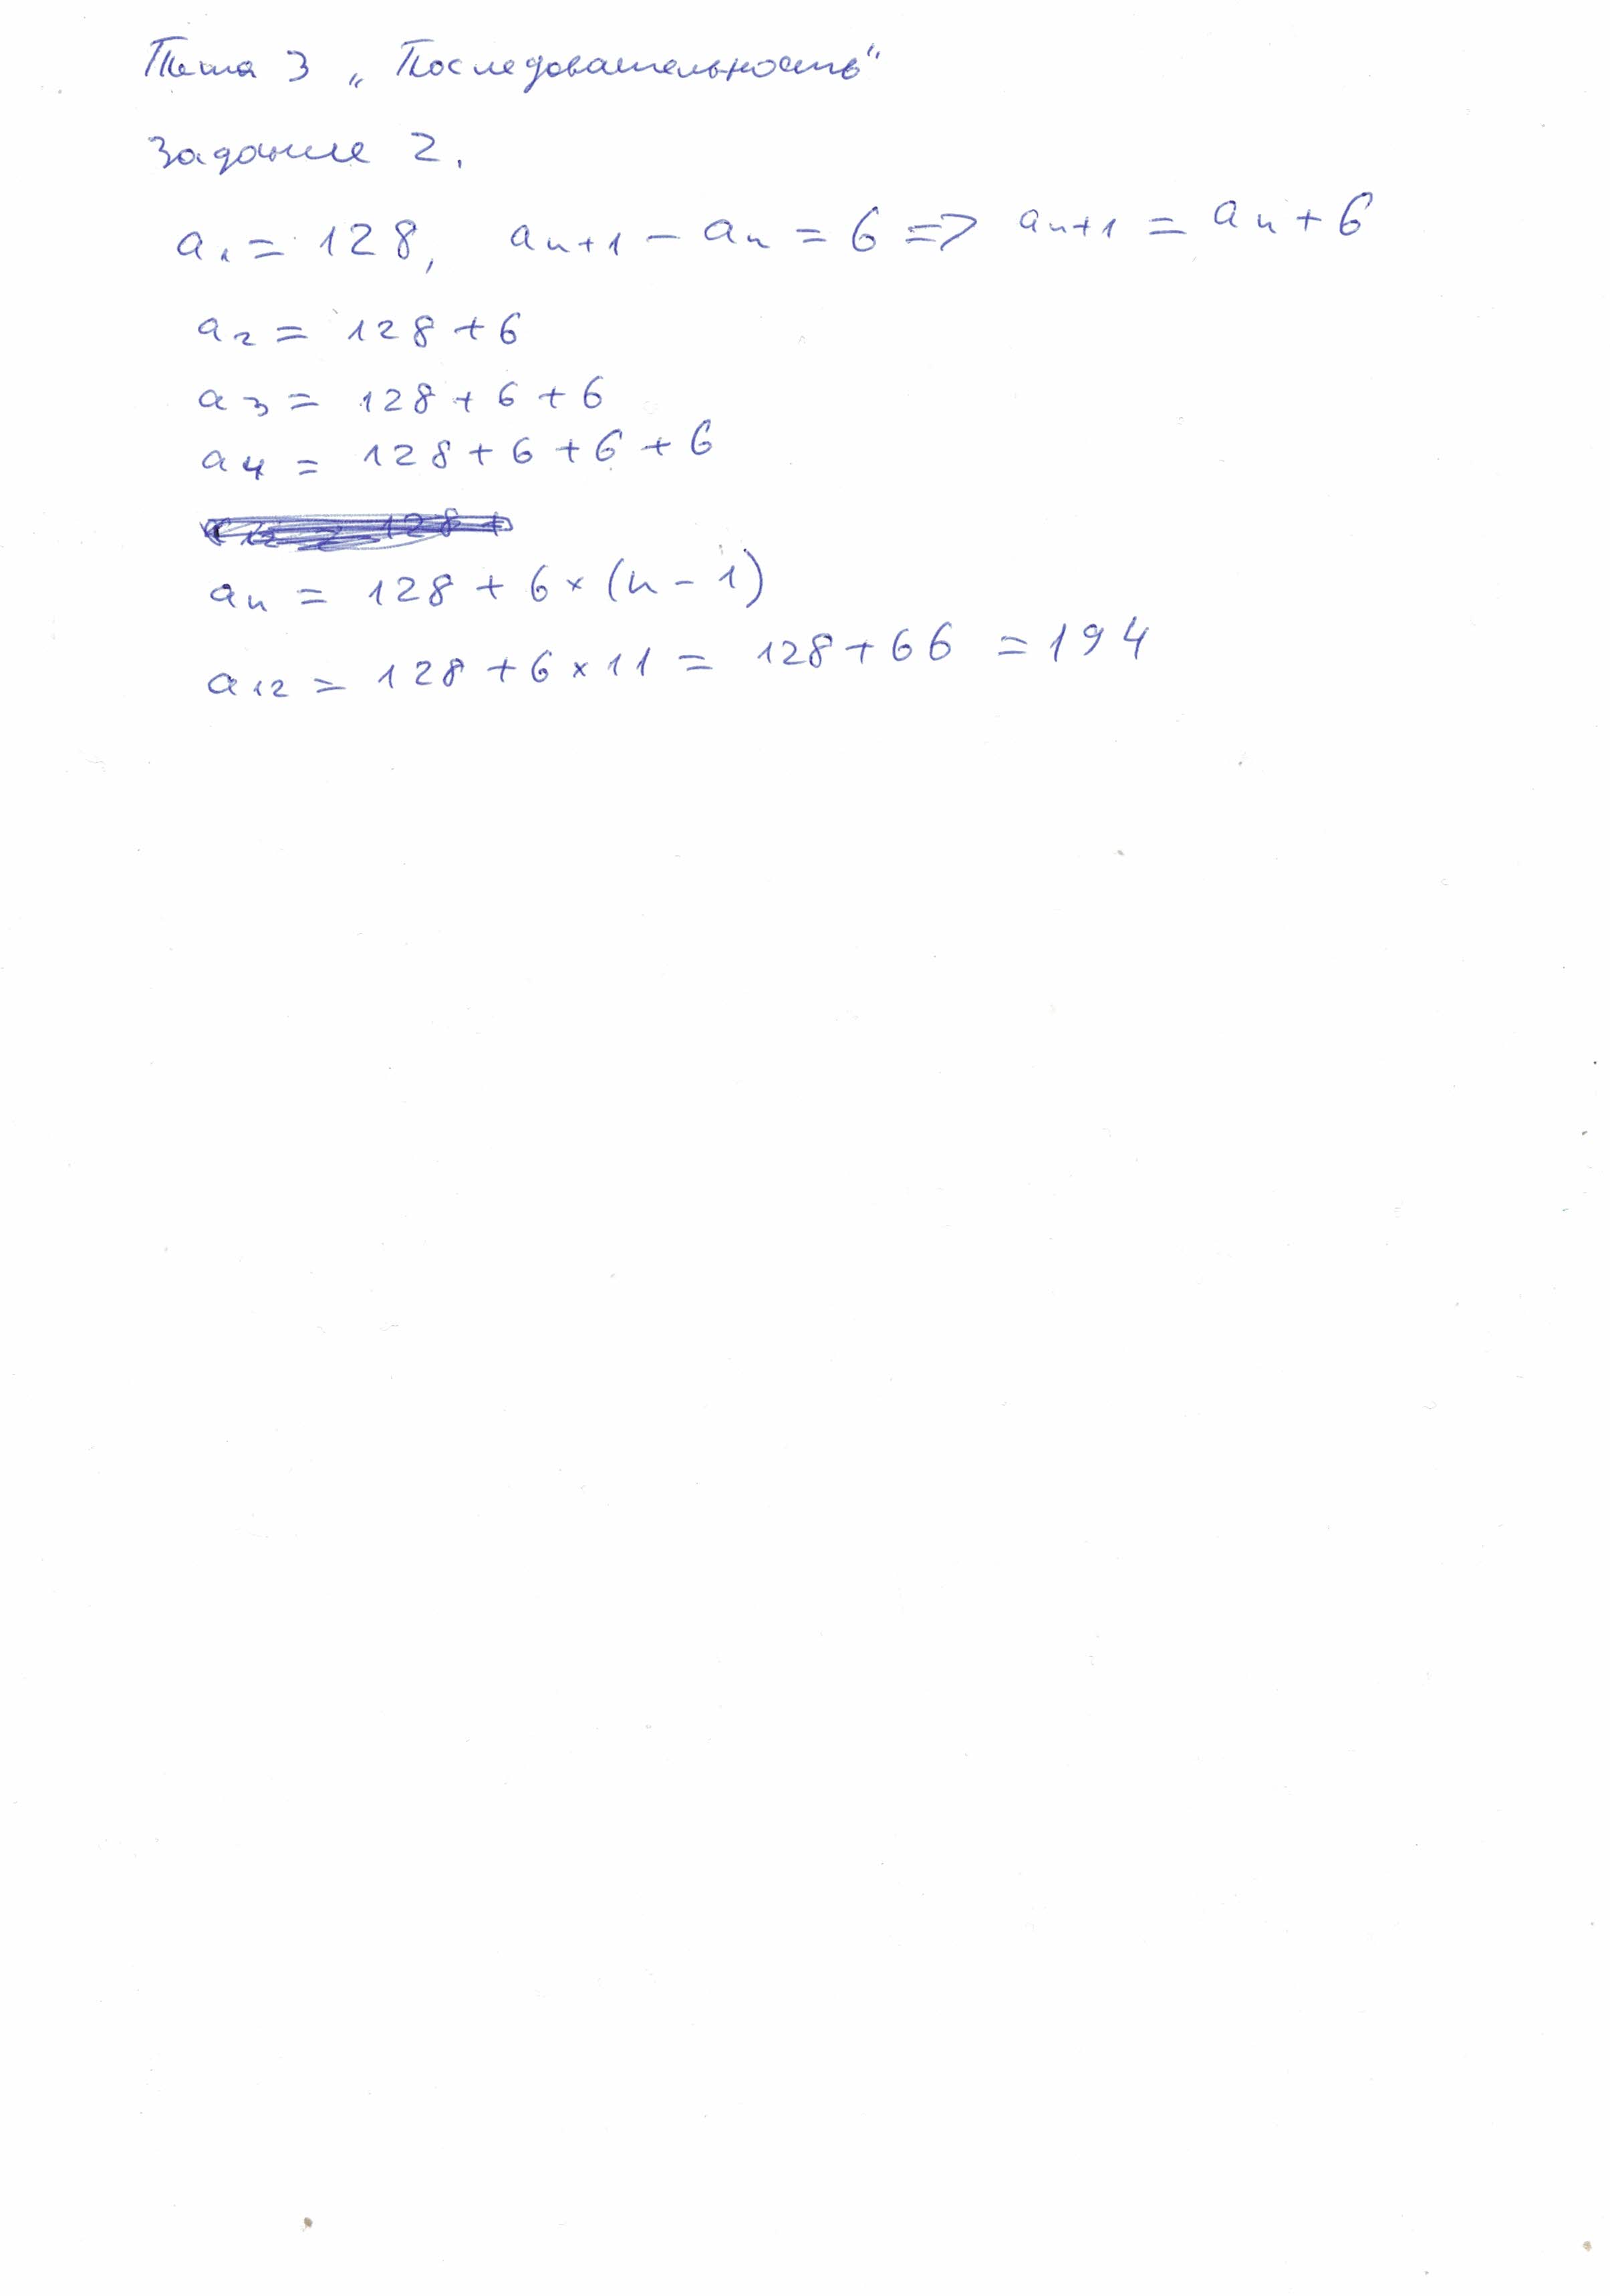 Тема 3 „Последовательность“
Задание 2.
a₁ = 128, aₙ₊₁ − aₙ = 6 => aₙ₊₁ = aₙ + 6
a₂ = 128 + 6
a₃ = 128 + 6 + 6
a₄ = 128 + 6 + 6 + 6
aₙ = 128 + 6 × (n − 1)
a₁₂ = 128 + 6 × 11 = 128 + 66 = 194